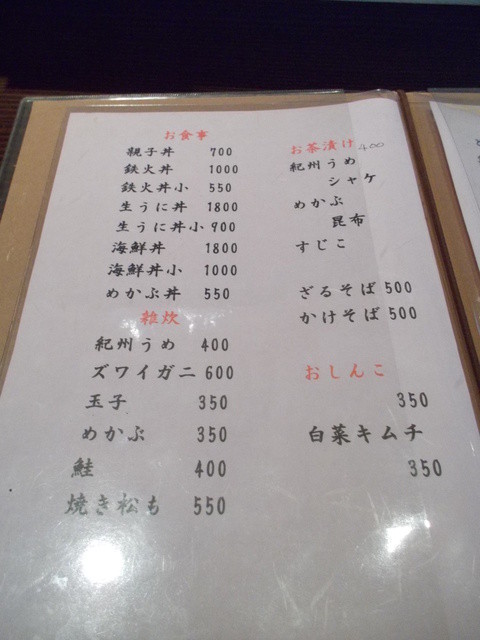 お食事
親子丼 700
鉄火丼 1000
鉄火丼小 550
生うに丼 1800
生うに丼小 900
海鮮丼 1800
海鮮丼小 1000
めかぶ丼 550
雑炊
紀州うめ 400
ズワイガニ 600
玉子 350
めかぶ 350
鮭 400
焼き松も 550
お茶漬け 400
紀州うめ
シャケ
めかぶ
昆布
すじこ
ざるそば 500
かけそば 500
おしんこ
350
白菜キムチ
350